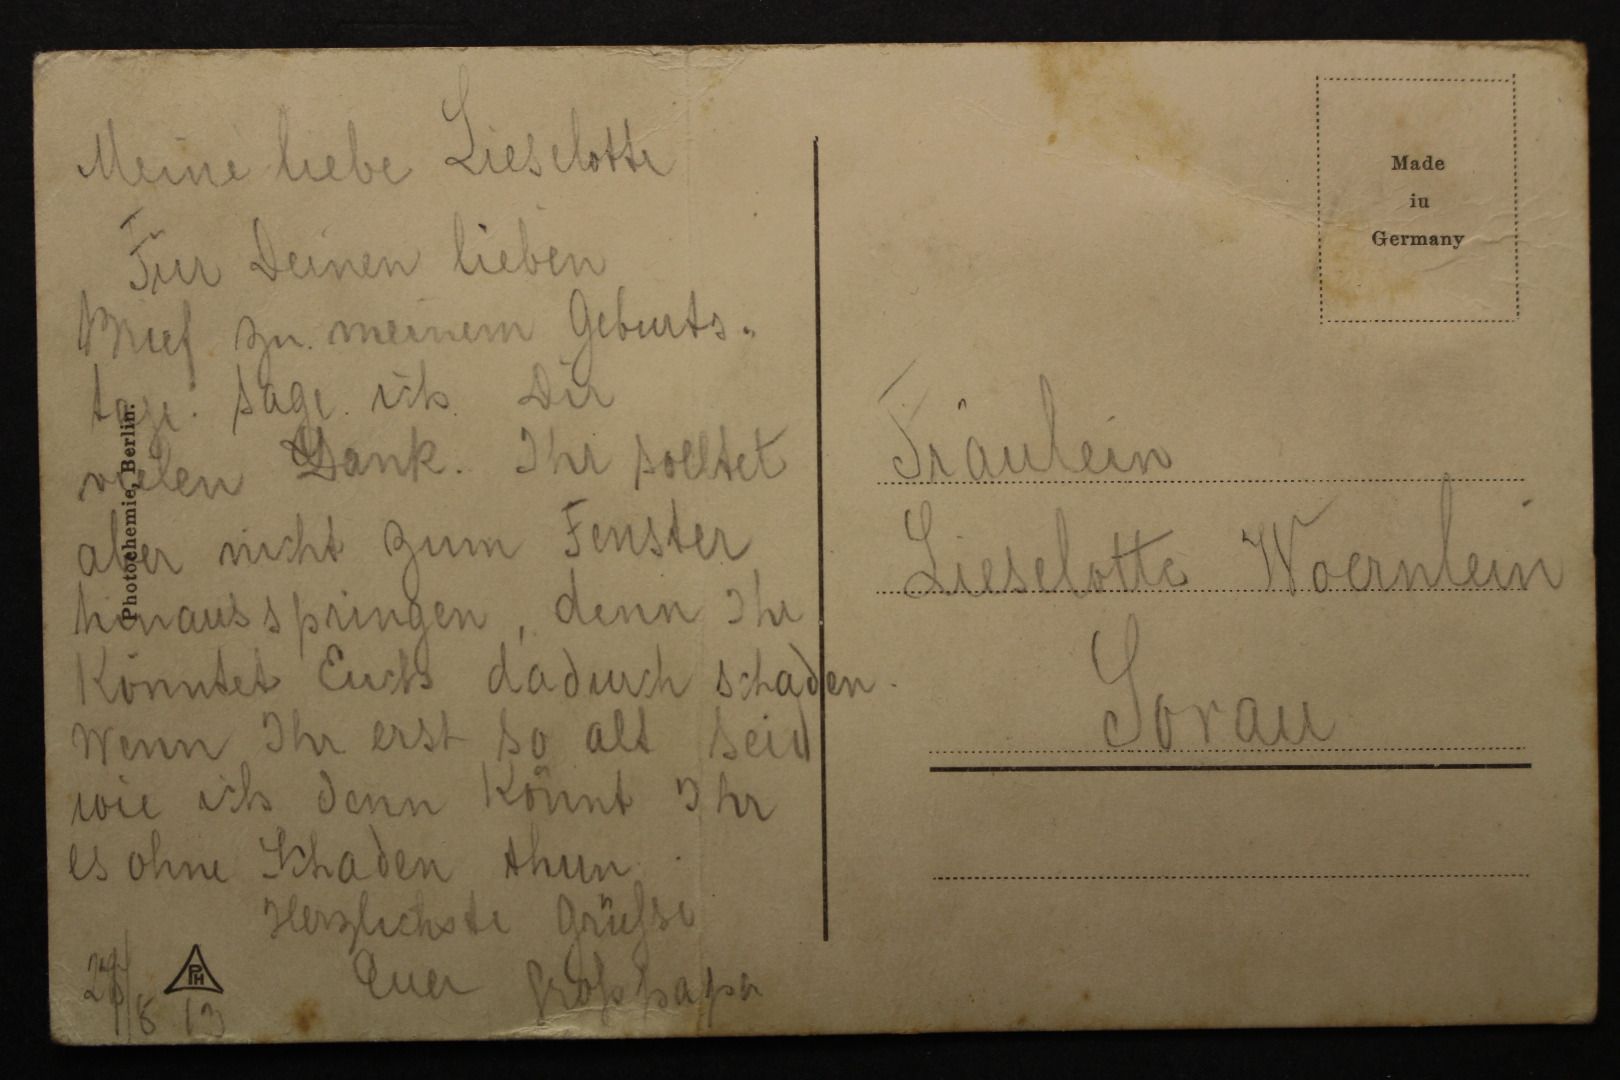 Meine liebe Lieselotte
Für Deinen lieben
Brief zu meinem Geburts-
tage sage ich Dir
vielen Dank. Ihr solltet
aber nicht zum Fenster
hinausspringen, denn Ihr
könntet Euch dadurch schaden.
Wenn Ihr erst so alt seid
wie ich dann könnt Ihr
es ohne Schaden thun.
Herzlichste Grüße
Euer Großpapa
/8 13
PH
Photochemie, Berlin.
Made
in
Germany
Fräulein
Lieselotte Woernlein
Sorau